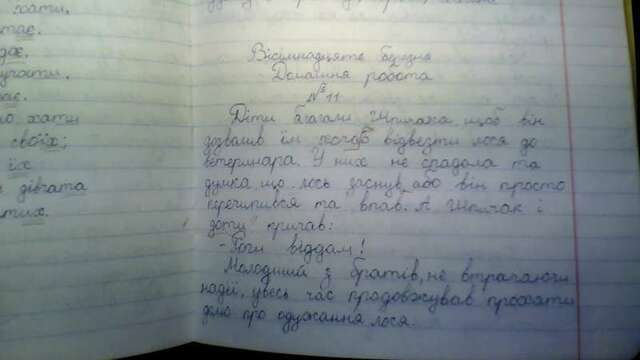 хати.
дає.
о хати
своїх;
їх
дівчата
тих.
Вісімнадцяте березня
Домашня робота
№ 11
Діти благали Шпичака щоб він
дозволив їм відвезти лося до
ветеринара. У них не спадала та
думка що лось заснув або він просто
перечипився та впав. А Шпичак і
кричав:
- Роги віддам!
Молодший з братів, не втрачаючи
надії, увесь час продовжував прохати
діда про одужання лося.